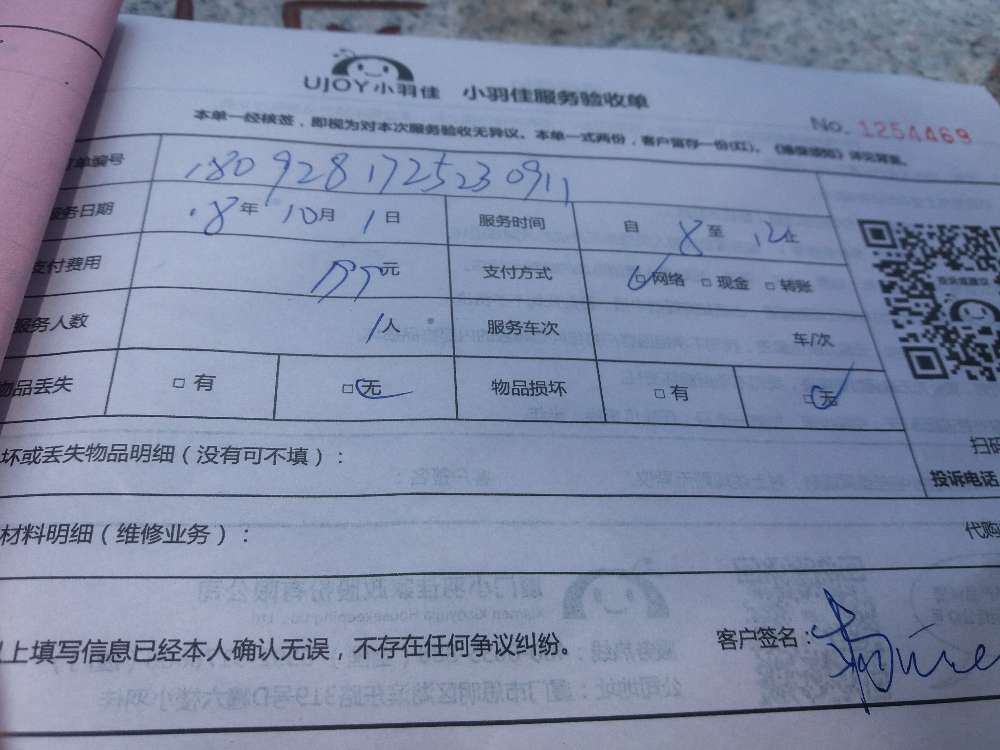 UJOY小羽佳 小羽佳服务验收单
No. 1254469
本单一经核签，即视为对本次服务验收无异议。本单一式两份，客户留存一份(红)。
单编号 1809281725230911
务日期 18年 10月 1日 服务时间 自 8至 12止
支付费用 199元 支付方式 网络 现金 转账
服务人数 1人 服务车次 车/次
物品丢失 有 无 物品损坏 有 无
坏或丢失物品明细（没有可不填）：
扫码
投诉电话
材料明细（维修业务）：
代购
以上填写信息已经本人确认无误，不存在任何争议纠纷。
客户签名：